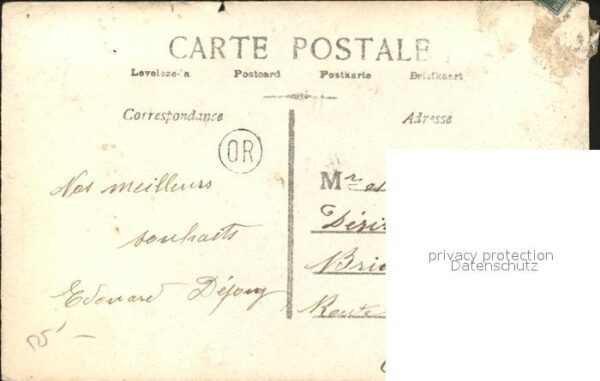 CARTE POSTALE
Levelezo-la Postcard Postkarte Briefkaart
Correspondance
Adresse
OR
Nos meilleurs
souhaits
Edouard
Mr et
Route
privacy protection
Datenschutz